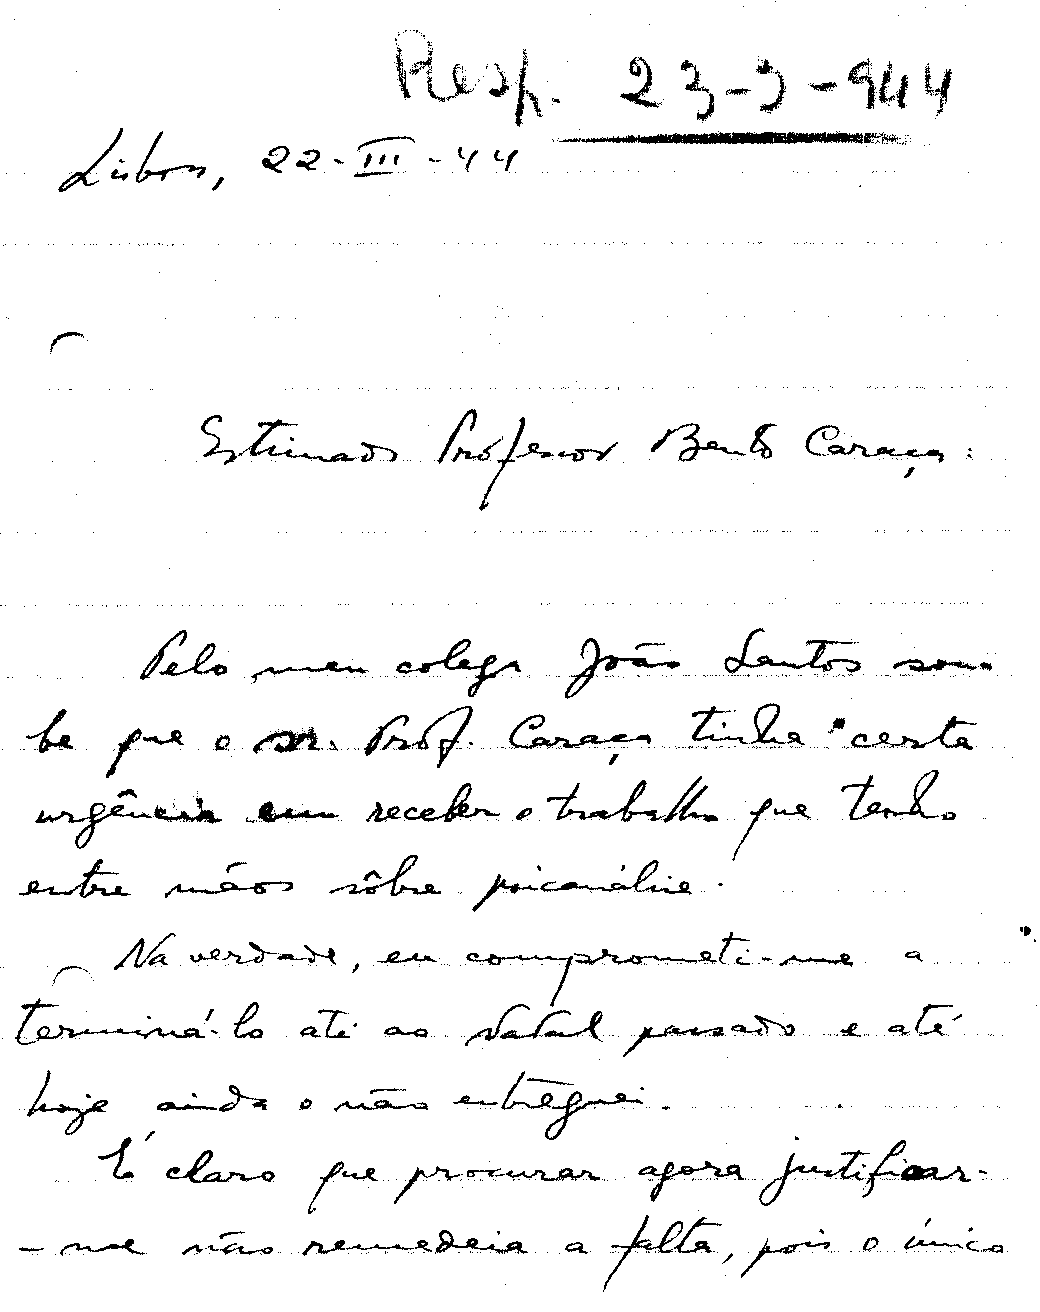 Resp. 23-3-944
Lisboa, 22-III-44
Estimado Professor Bento Caraça:
Pelo meu colega João Santos sou-
be que o sr. Prof. Caraça tinha certa
urgência em receber o trabalho que tenho
entre mãos sôbre psicanálise.
Na verdade, eu comprometi-me a
terminá-lo até ao Natal passado e até
hoje ainda o não entreguei.
É claro que procurar agora justificar-
-me não remedeia a falta, pois o único